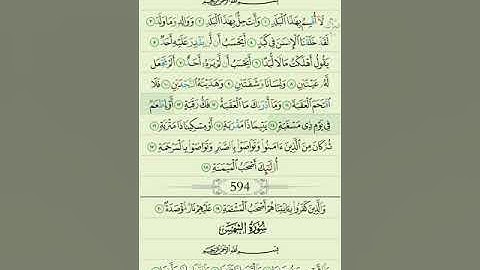 بِسْمِ ٱللَّهِ ٱلرَّحْمَٰنِ ٱلرَّحِيمِ
لَآ أُقْسِمُ بِهَٰذَا ٱلْبَلَدِ ١ وَأَنتَ حِلٌّۢ بِهَٰذَا ٱلْبَلَدِ ٢ وَوَالِدٍ وَمَا وَلَدَ ٣
لَقَدْ خَلَقْنَا ٱلْإِنسَٰنَ فِى كَبَدٍ ٤ أَيَحْسَبُ أَن لَّن يَقْدِرَ عَلَيْهِ أَحَدٌ ٥
يَقُولُ أَهْلَكْتُ مَالًا لُّبَدًا ٦ أَيَحْسَبُ أَن لَّمْ يَرَهُۥٓ أَحَدٌ ٧ أَلَمْ نَجْعَل
لَّهُۥ عَيْنَيْنِ ٨ وَلِسَانًا وَشَفَتَيْنِ ٩ وَهَدَيْنَٰهُ ٱلنَّجْدَيْنِ ١٠ فَلَا
ٱقْتَحَمَ ٱلْعَقَبَةَ ١١ وَمَآ أَدْرَىٰكَ مَا ٱلْعَقَبَةُ ١٢ فَكُّ رَقَبَةٍ ١٣ أَوْ إِطْعَٰمٌ
فِى يَوْمٍ ذِى مَسْغَبَةٍ ١٤ يَتِيمًا ذَا مَقْرَبَةٍ ١٥ أَوْ مِسْكِينًا ذَا مَتْرَبَةٍ ١٦
ثُمَّ كَانَ مِنَ ٱلَّذِينَ ءَامَنُوا۟ وَتَوَاصَوْا۟ بِٱلصَّبْرِ وَتَوَاصَوْا۟ بِٱلْمَرْحَمَةِ ١٧
أُو۟لَٰٓئِكَ أَصْحَٰبُ ٱلْمَيْمَنَةِ ١٨
594
وَٱلَّذِينَ كَفَرُوا۟ بِـَٔايَٰتِنَا هُمْ أَصْحَٰبُ ٱلْمَشْـَٔمَةِ ١٩ عَلَيْهِمْ نَارٌ مُّؤْصَدَةٌۢ ٢٠
سُورَةُ ٱلشَّمْسِ
بِسْمِ ٱللَّهِ ٱلرَّحْمَٰنِ ٱلرَّحِيمِ